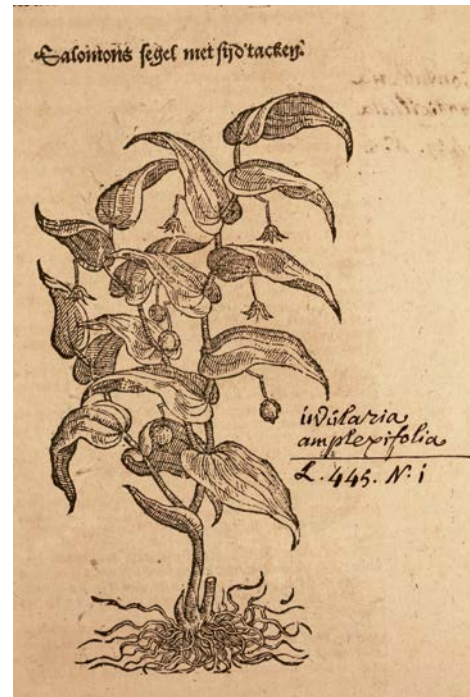 Salomons segel met sijd tacken.
uvularia
amplexifolia
L. 445. N. 1